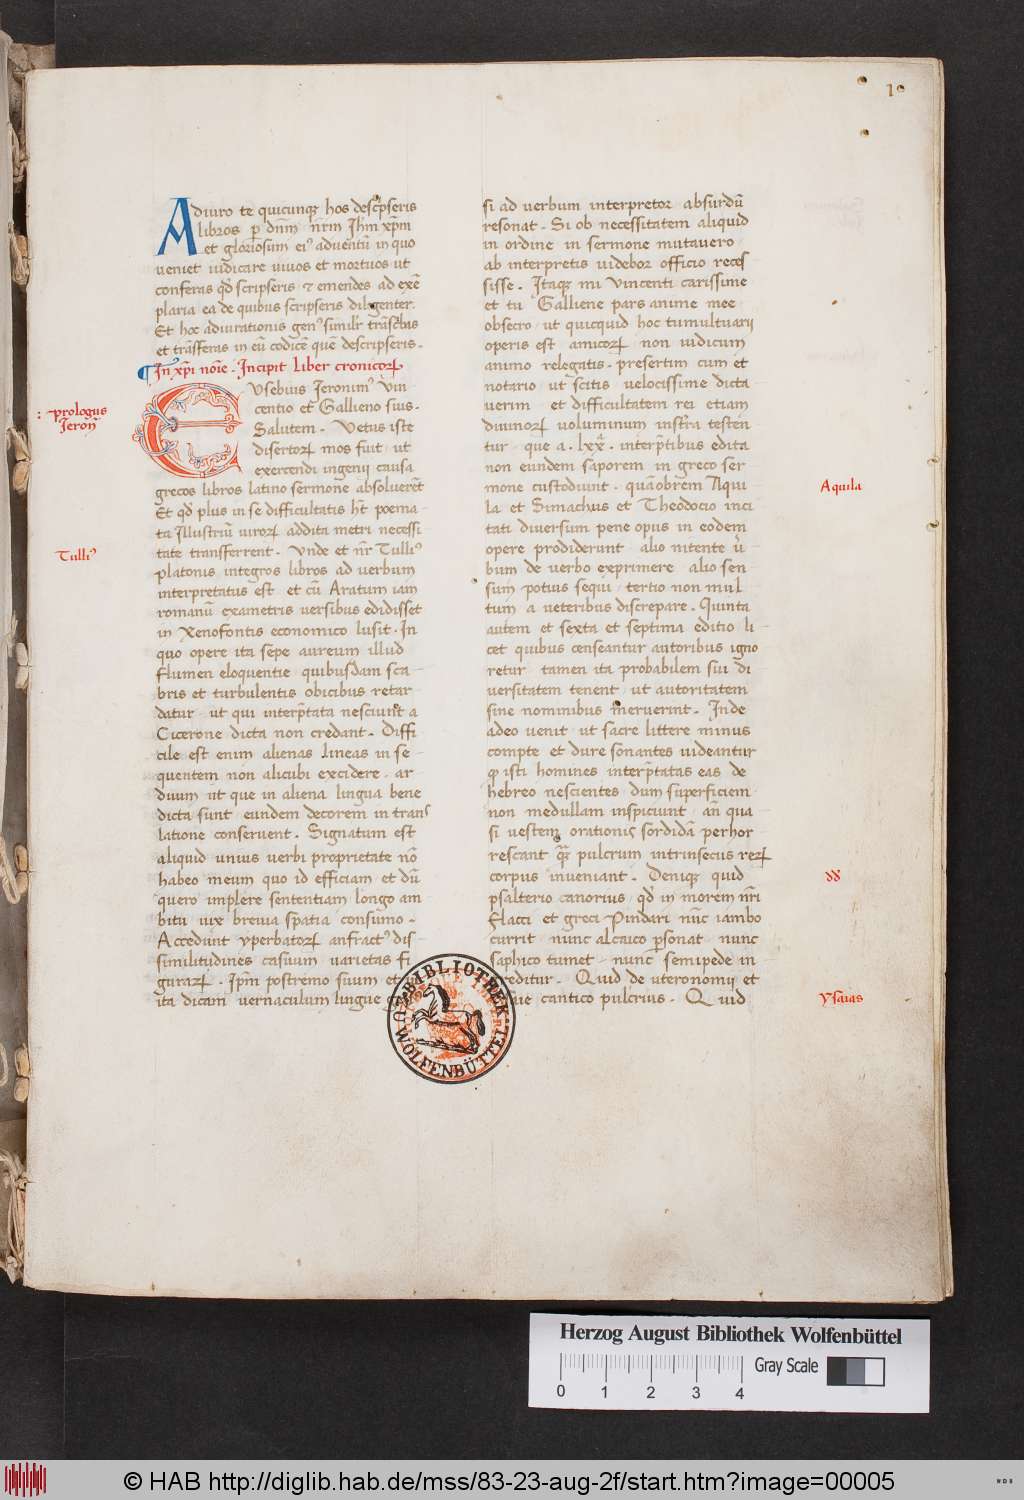 1
Adiuro te quicunqꝫ hos descͥpseris
libros ꝑ dn̄m n̄rm Ihm̄ xp̄m
et gloriosum eiꝰ aduentū in quo
ueniet iudicare uiuos et mortuos ut
conferas qđ scripseris ⁊ emendes ad exē
plaria ea de quibus scripseris diligenter.
Et hoc adiurationis genꝰ simil'r trāscͥbas
et trāsferas in eū codicē quē descripseris.
¶ In xp̄i noīe. Incipit liber cronicoꝝ
: prologus
Ieron̄
Eusebius Ieronimꝰ Vin
centio et Gallieno suis.
Salutem. Vetus iste
disertoꝝ mos fuit ut
exercendi ingenii causa
grecos libros latino sermone absoluerēt
Et qđ plus in se difficultatis hēt poema
ta Illustriū uiroꝝ addita metri necessi
tate transferrent. Vnde et nr̄ Tulliꝰ
Tulliꝰ
platonis integros libros ad uerbum
interpretatus est et cū Aratum iam
romanū exametris uersibus edidisset
in Xenofontis economico lusit. In
quo opere ita sepe aureum illud
flumen eloquentie quibusdam sca
bris et turbulentis obicibus retar
datur ut qui interp̄tata nesciunt a
Cicerone dicta non credant. Diffi
cile est enim alienas lineas in se
quentem non alicubi excidere. ar
duum ut que in aliena lingua bene
dicta sunt eundem decorem in trans
latione conseruent. Signatum est
aliquid unius uerbi proprietate nō
habeo meum quo id efficiam et dū
quero implere sententiam longo am
bitu uix breuia spatia consumo.
Accedunt yperbatoꝝ anfractꝰ dis
similitudines casuum uarietas fi
guraꝝ. Ip̄m postremo suum et
ita dicam uernaculum lingue
si ad uerbum interpretor absurdū
resonat. Si ob necessitatem aliquid
in ordine in sermone mutauero
ab interpretis uidebor officio reces
sisse. Itaqꝫ mi Vincenti carissime
et tu Galliene pars anime mee
obsecro ut quicquid hoc tumultuarii
operis est amicoꝝ non iudicum
animo relegatis. presertim cum et
notario ut scitis uelocissime dicta
uerim et difficultatem rei etiam
diuinoꝝ uoluminum instr̄a testen
tur que a .lxx. interp̄tibus edita
non eundem saporem in greco ser
mone custodiunt. quāobrem Aqui
Aquila
la et Simachus et Theodocio inci
tati diuersum pene opus in eodem
opere prodiderunt alio nitente ū
bum de uerbo exprimere alio sen
sum potius sequi tertio non mul
tum a ueteribus discrepare. Quinta
autem et sexta et septima editio li
cet quibus censeantur autoribus igno
retur tamen ita probabilem sui di
uersitatem tenent ut autoritatem
sine nominibus meruerint. Inde
adeo uenit ut sacre littere minus
compte et dure sonantes uideantur
ꝙ isti homines interp̄tatas eas de
hebreo nescientes dum superficiem
non medullam inspiciunt an̄ qua
si uestem orationis sordidā perhor
rescant qͣꝫ pulcrum intrinsecus reꝝ
corpus inueniant. Deniqꝫ quid
dd
psalterio canorius qđ in morem nr̄i
Flacci et greci Pindari nūc iambo
currit nunc alcaico ꝑsonat nunc
saphico tumet nunc semipede in
greditur. Quid de uteronomii et
ysaias
cantico pulcrius. Quid
BIBLIOTHEK
WOLFENBÜTTEL
Herzog August Bibliothek Wolfenbüttel
Gray Scale
0 1 2 3 4
© HAB http://diglib.hab.de/mss/83-23-aug-2f/start.htm?image=00005